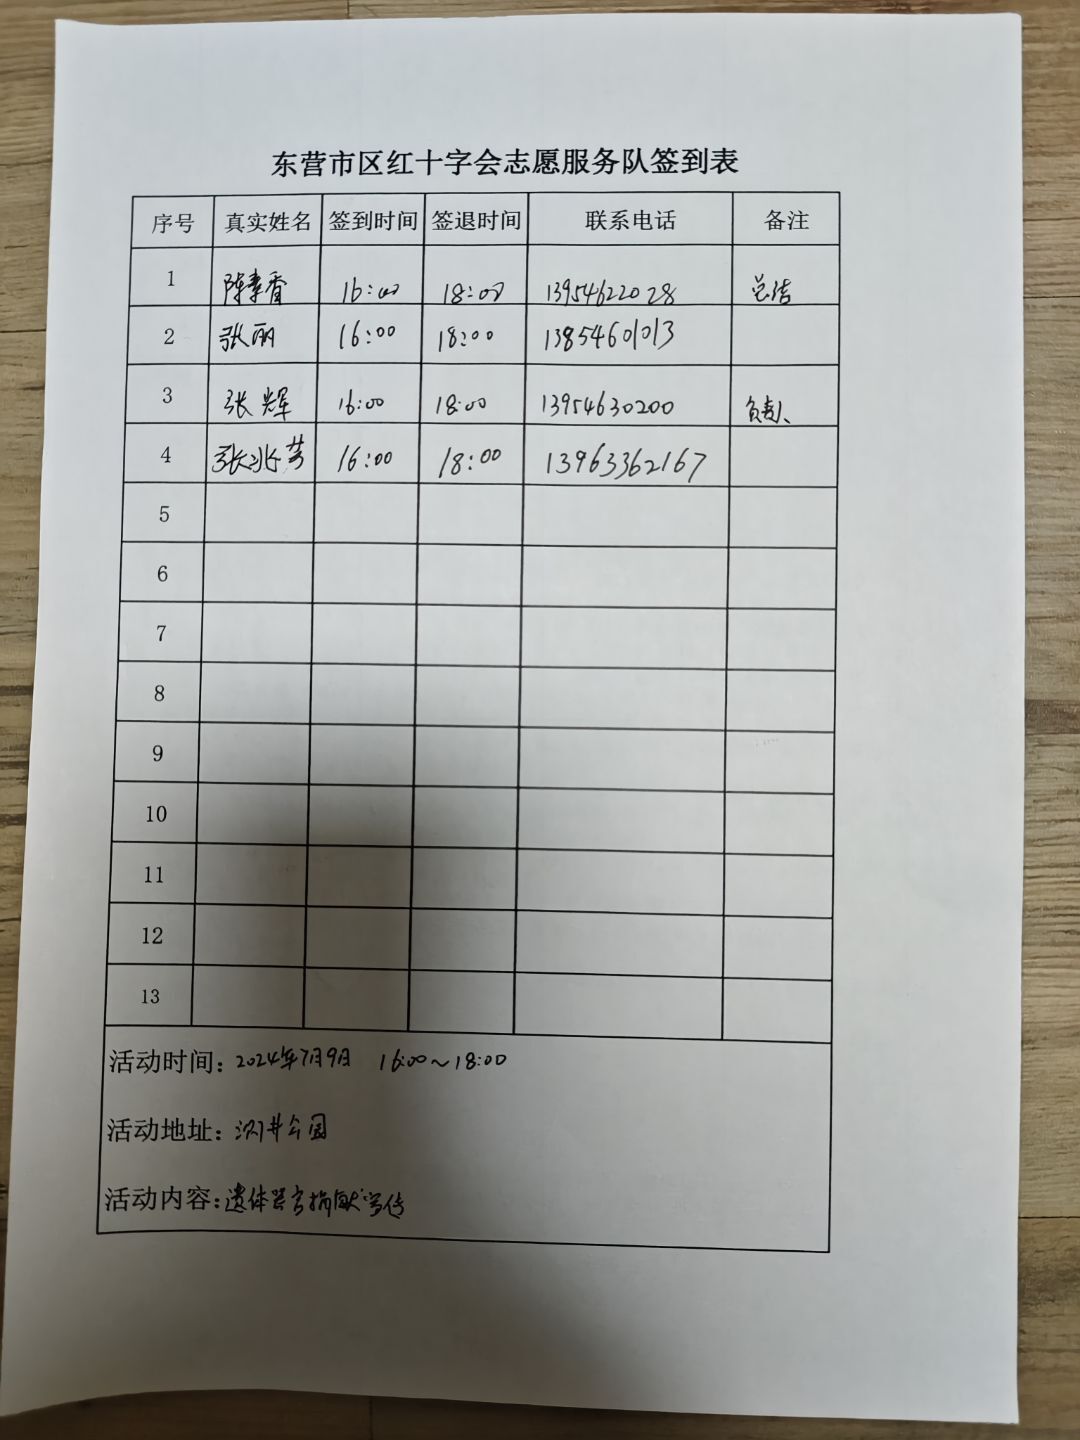 东营市区红十字会志愿服务队签到表
序号 真实姓名 签到时间 签退时间 联系电话 备注
1 陈素香 16:00 18:00 13954622028 总结
2 张丽 16:00 18:00 13854601013
3 张辉 16:00 18:00 13954630200 负责人
4 张兆芬 16:00 18:00 13963362167
5
6
7
8
9
10
11
12
13
活动时间：2024年7月9日 16:00~18:00
活动地址：公园
活动内容：遗体器官捐献宣传